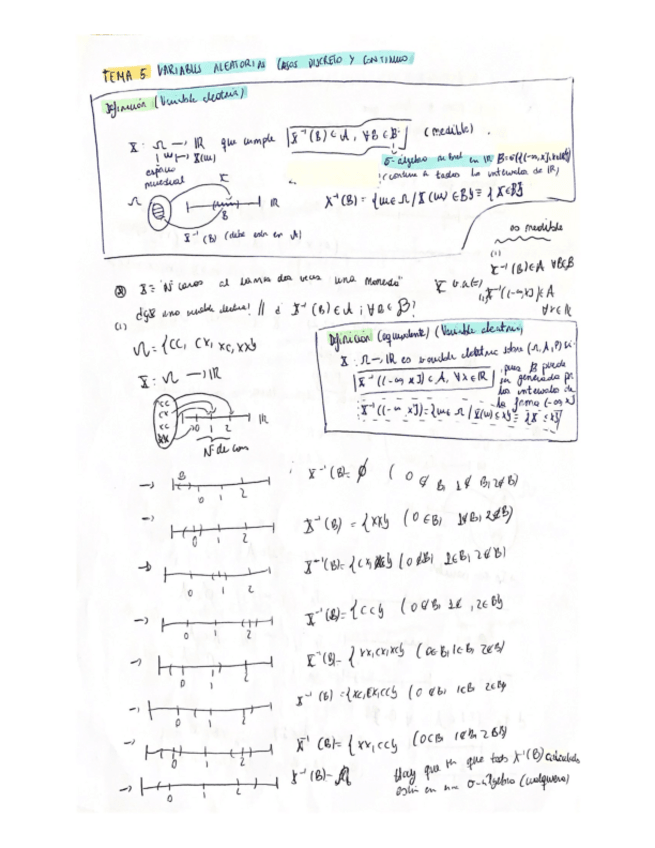 TEMA 5 VARIABLES ALEATORIAS CASOS DISCRETO Y CONTINUO
Definición (Variable aleatoria)
X: Ω → IR que cumple X⁻¹(B) ∈ A, ∀B ∈ B (medible).
w → X(w)
espacio muestral
σ-álgebra de Borel en IR
(contiene a todos los intervalos de IR)
Ω X IR
B
X⁻¹(B) = {w ∈ Ω / X(w) ∈ B} ≡ {X ∈ B}
X⁻¹(B) (debe estar en A)
es medible
(1)
X⁻¹(B) ∈ A ∀B ∈ B
X v.a
X⁻¹((-∞, x]) ∈ A
∀x ∈ IR
X = "Nº caras al lanzar dos veces una moneda"
(1) ¿Es X una variable aleatoria? // ¿ X⁻¹(B) ∈ A ; ∀B ∈ B?
Ω = {CC, CX, XC, XX}
X: Ω → IR
Definición (equivalente) (Variable aleatoria)
X: Ω → IR es variable aleatoria sobre (Ω, A, P) si
X⁻¹((-∞, x]) ∈ A, ∀x ∈ IR
pues B puede
ser generado por
los intervalos de
la forma (-∞, x]
X⁻¹((-∞, x]) = {w ∈ Ω / X(w) ≤ x} ≡ {X ≤ x}
CC
CX
XC
XX
0 1 2 IR
Nº de caras
→ B 0 1 2 X⁻¹(B) = ∅ (0 ∉ B, 1 ∉ B, 2 ∉ B)
→ 0 1 2 X⁻¹(B) = {XX} (0 ∈ B, 1 ∉ B, 2 ∉ B)
→ 0 1 2 X⁻¹(B) = {CX, XC} (0 ∉ B, 1 ∈ B, 2 ∉ B)
→ 0 1 2 X⁻¹(B) = {CC} (0 ∉ B, 1 ∉ , 2 ∈ B}
→ 0 1 2 X⁻¹(B) = {XX, CX, XC} (0 ∈ B, 1 ∈ B, 2 ∉ B)
→ 0 1 2 X⁻¹(B) = {XC, CX, CC} (0 ∉ B, 1 ∈ B 2 ∈ B)
→ 0 1 2 X⁻¹(B) = {XX, CC} (0 ∈ B 1 ∉ B 2 ∈ B)
→ 0 1 2 X⁻¹(B) = Ω
Hay que ver que todos X⁻¹(B) calculados
estén en una σ-álgebra (cualquiera)